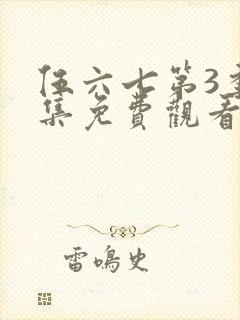 伍六七第3季
集免費觀看
雷鳴史